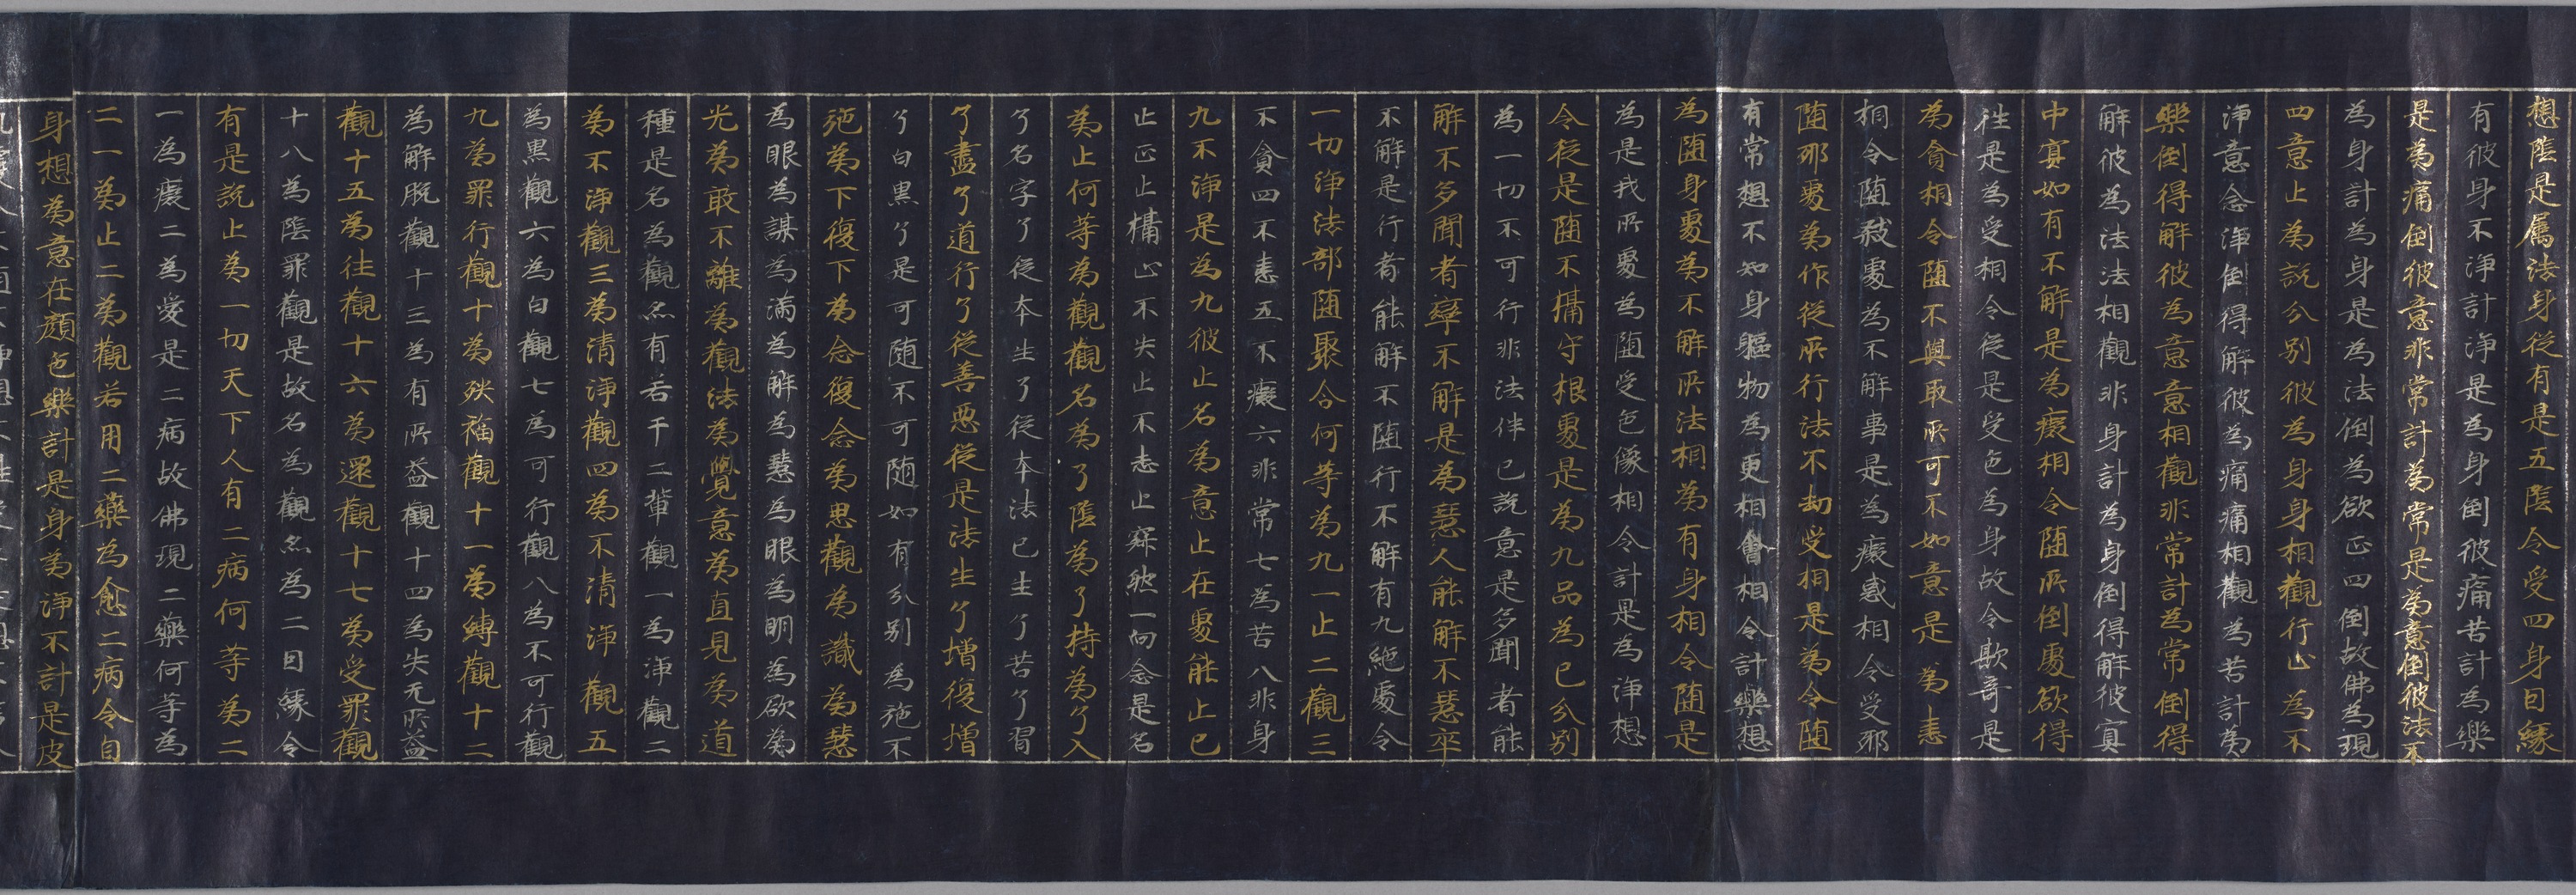 想陰是属法身從有是五陰令受四身因緣
有彼身不淨計淨是為身倒彼痛苦計為樂
是為痛倒彼意非常計為常是為意倒彼法不
為身計為身是為法倒為欲正四倒故佛為現
四意止為說分別彼為身身相觀行止為不
淨意念淨倒得解彼為痛痛相觀為苦計為
樂倒得解彼為意意相觀非常計為常倒得
解彼為法法相觀非身計為身倒得解彼冥
中冥如有不解是為癡相令随所倒處欲得
往是為受相令從是受色為身故令欺奇是
為貪相令随不興取所可不如意是為恚
相令随殺處為不解事是為癡惑相令受邪
随邪處為作從所行法不劫受相是為令随
有常想不知身軀物為更相會相令計樂想
為随身處為不解所法相為有身相令随是
為是我所處為随受色像相令計是為淨想
令從是随不攝守根處是為九品為已分別
為一切不可行非法伴已說意是多聞者能
解不多聞者卒不解是為慧人能解不慧卒
不解是行者能解不随行不解有九絕處令
一切淨法部随聚合何等為九一止二觀三
不貪四不恚五不癡六非常七為苦八非身
九不淨是為九彼止名為意止在處能止已
止正止攝止不失止不志止寂然一向念是名
為止何等為觀觀名為了陰為了持為了入
了名字了從本生了從本法已生了苦了習
了盡了道行了從善惡從是法生了增復增
了白黑了是可随不可随如有分別為施不
施為下復下為念復念為思觀為識為慧
為眼為謀為滿為解為慧為眼為明為欲為
光為敢不離為觀法為覺意為直見為道
種是名為觀亦有若干二輩觀一為淨觀二
為不淨觀三為清淨觀四為不清淨觀五
為黒觀六為白觀七為可行觀八為不可行觀
九為罪行觀十為殃福觀十一為縛觀十二
為解脫觀十三為有所益觀十四為失无所益
觀十五為往觀十六為還觀十七為受罪觀
十八為陰罪觀是故名為觀亦為二因緣令
有是說止為一切天下人有二病何等為二
一為癡二為愛是二病故佛現二藥何等為
二一為止二為觀若用二藥為愈二病令自
身想為意在顏色樂計是身為淨不計是皮